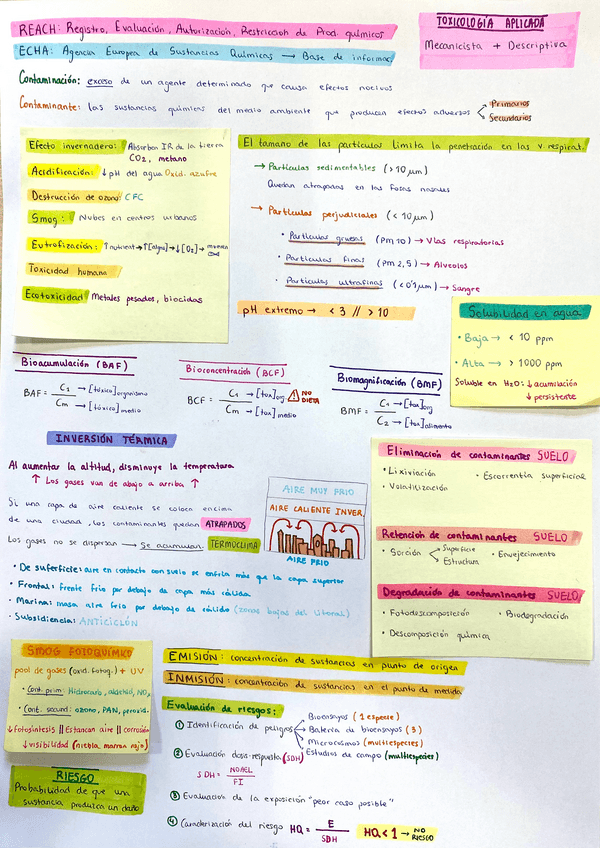 REACH: Registro, Evaluación, Autorización, Restricción de Prod. químicos
TOXICOLOGÍA APLICADA
Mecanicista + Descriptiva
ECHA: Agencia Europea de Sustancias Químicas → Base de informac
Contaminación: exceso de un agente determinado que causa efectos nocivos
Contaminante: las sustancias químicas del medio ambiente que producen efectos adversos
Primarios
Secundarios
Efecto invernadero: Absorben IR de la tierra
CO2, metano
Acidificación: ↓pH del agua Oxid. azufre
Destrucción de ozono: CFC
Smog: Nubes en centros urbanos
Eutrofización: ↑nutrient → ↑[algas] → ↓[O2] →
Toxicidad humana
Ecotoxicidad Metales pesados, biocidas
El tamaño de las partículas limita la penetración en las v. respirat.
→ Partículas sedimentables (>10 μm)
Quedan atrapadas en las fosas nasales
→ Partículas perjudiciales (<10 μm)
• Partículas gruesas (PM 10) → Vías respiratorias
• Partículas finas (PM 2,5) → Alveolos
• Partículas ultrafinas (<0'1 μm) → Sangre
pH extremo → <3 // >10
Solubilidad en agua
• Baja → < 10 ppm
• Alta → > 1000 ppm
Soluble en H2O: ↓acumulación
↓persistente
Bioacumulación (BAF)
BAF = C1 → [tóxico] organismo
Cm → [tóxico] medio
Bioconcentración (BCF)
BCF = C1 → [tox] org. NO DIETA
Cm → [tox] medio
Biomagnificación (BMF)
BMF = C1 → [tox] org
C2 → [tox] alimento
INVERSIÓN TÉRMICA
Al aumentar la altitud, disminuye la temperatura
↑ Los gases van de abajo a arriba ↑
Si una capa de aire caliente se coloca encima
de una ciudad, los contaminantes quedan ATRAPADOS
Los gases no se dispersan → se acumulan. TERMOCLIMA
AIRE MUY FRIO
AIRE CALIENTE INVER.
AIRE FRIO
• De superficie: aire en contacto con suelo se enfría más que la capa superior
• Frontal: frente frío por debajo de capa más cálida
• Marina: masa aire frío por debajo de cálido (zonas bajas del litoral)
• Subsidencia: ANTICICLÓN
Eliminación de contaminantes SUELO
• Lixiviación
• Escorrentía superficial
• Volatilización
Retención de contaminantes SUELO
• Sorción
Superficie
Estructura
• Envejecimiento
Degradación de contaminantes SUELO
• Fotodescomposición
• Biodegradación
• Descomposición química
SMOG FOTOQUÍMICO
pool de gases (oxid. fotoq.) + UV
• Cont. prim: Hidrocarb, aldehid, NOx
• Cont. secund: ozono, PAN, peroxid.
↓Fotosíntesis || Estancan aire || corrosión
↓visibilidad (niebla marrón rojo)
RIESGO
Probabilidad de que una
sustancia produzca un daño
EMISIÓN: concentración de sustancias en punto de origen
INMISIÓN: concentración de sustancias en el punto de medida
Evaluación de riesgos:
① Identificación de peligros
Bioensayos (1 especie)
Batería de bioensayos (3)
Microcosmos (multiespecies)
Estudios de campo (multiespecies)
② Evaluación dosis-respuesta (SDH)
SDH = NOAEL
FI
③ Evaluación de la exposición "peor caso posible"
④ Caracterización del riesgo HQ = E
SDH
HQ < 1 → NO RIESGO